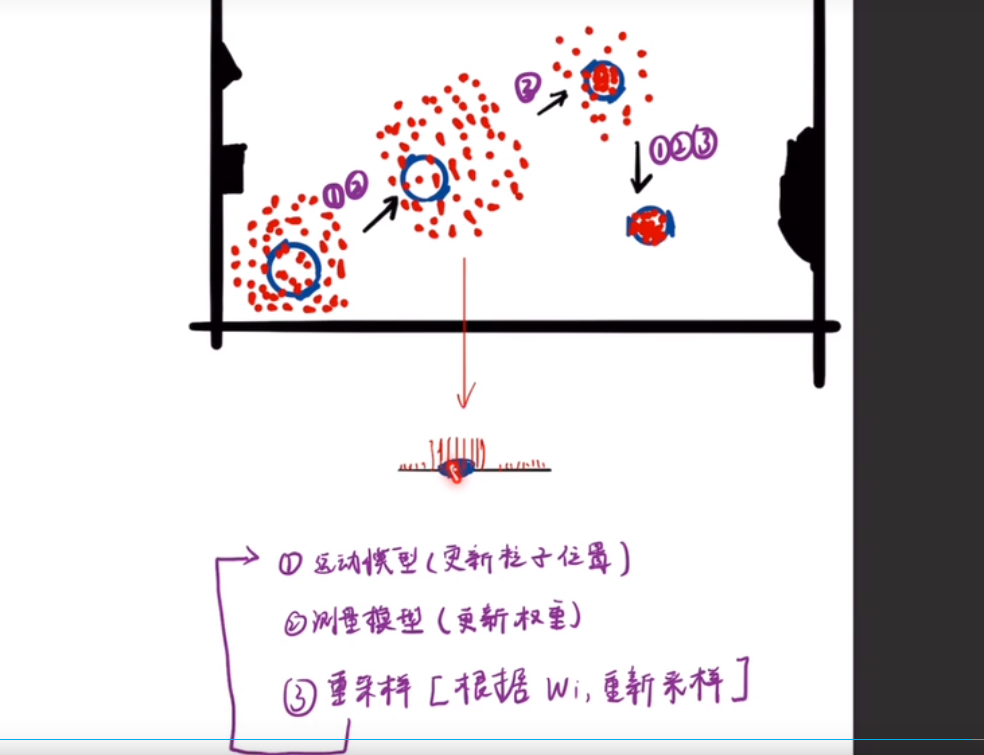 ①②
②
①②③
① 运动模型(更新粒子位置)
②测量模型(更新权重)
③ 重采样[根据 Wi,重新采样]